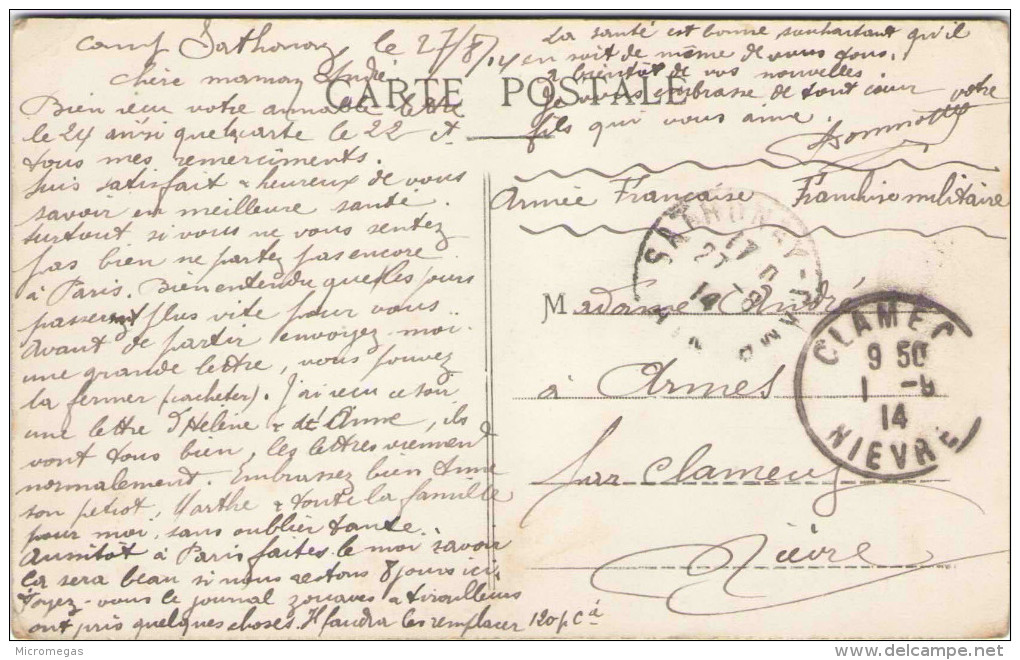 Camp Sathonay le 27/8/14
Chère maman André
CARTE POSTALE
Bien reçu votre aimable lettre
le 24 ainsi que carte le 22 et
tous mes remerciments.
Suis satisfait & heureux de vous
savoir en meilleure santé.
Surtout si vous ne vous sentez
pas bien ne partez pas encore
à Paris. Bien entendu que les jours
passeront plus vite pour vous.
Avant de partir envoyez-moi
une grande lettre, vous pouvez
la fermer (cacheter). J'ai reçu ce soir
une lettre d'Hélène & de Anne, ils
vont tous bien, les lettres viennent
normalement. Embrassez bien Anne
son petiot, Marthe & toute la famille
pour moi, sans oublier tante.
Aussitôt à Paris faites-le moi savoir
Ça sera beau si nous restons 8 jours ici,
Voyez-vous le journal zouaves & tirailleurs
ont pris quelques choses. Il faudra les remplacer
La santé est bonne souhaitant qu'il
en soit de même de vous tous.
A bientôt de vos nouvelles.
Je vous embrasse de tout cœur votre
fils qui vous aime.
Armée Française Franchise militaire
SATHONAY-CAMP
17
27 -8
14
AIN
Madame André
à Armes
par Clamecy
Nièvre
CLAMECY
9 50
1 -9
14
NIEVRE
Micromegas
www.delcampe.net